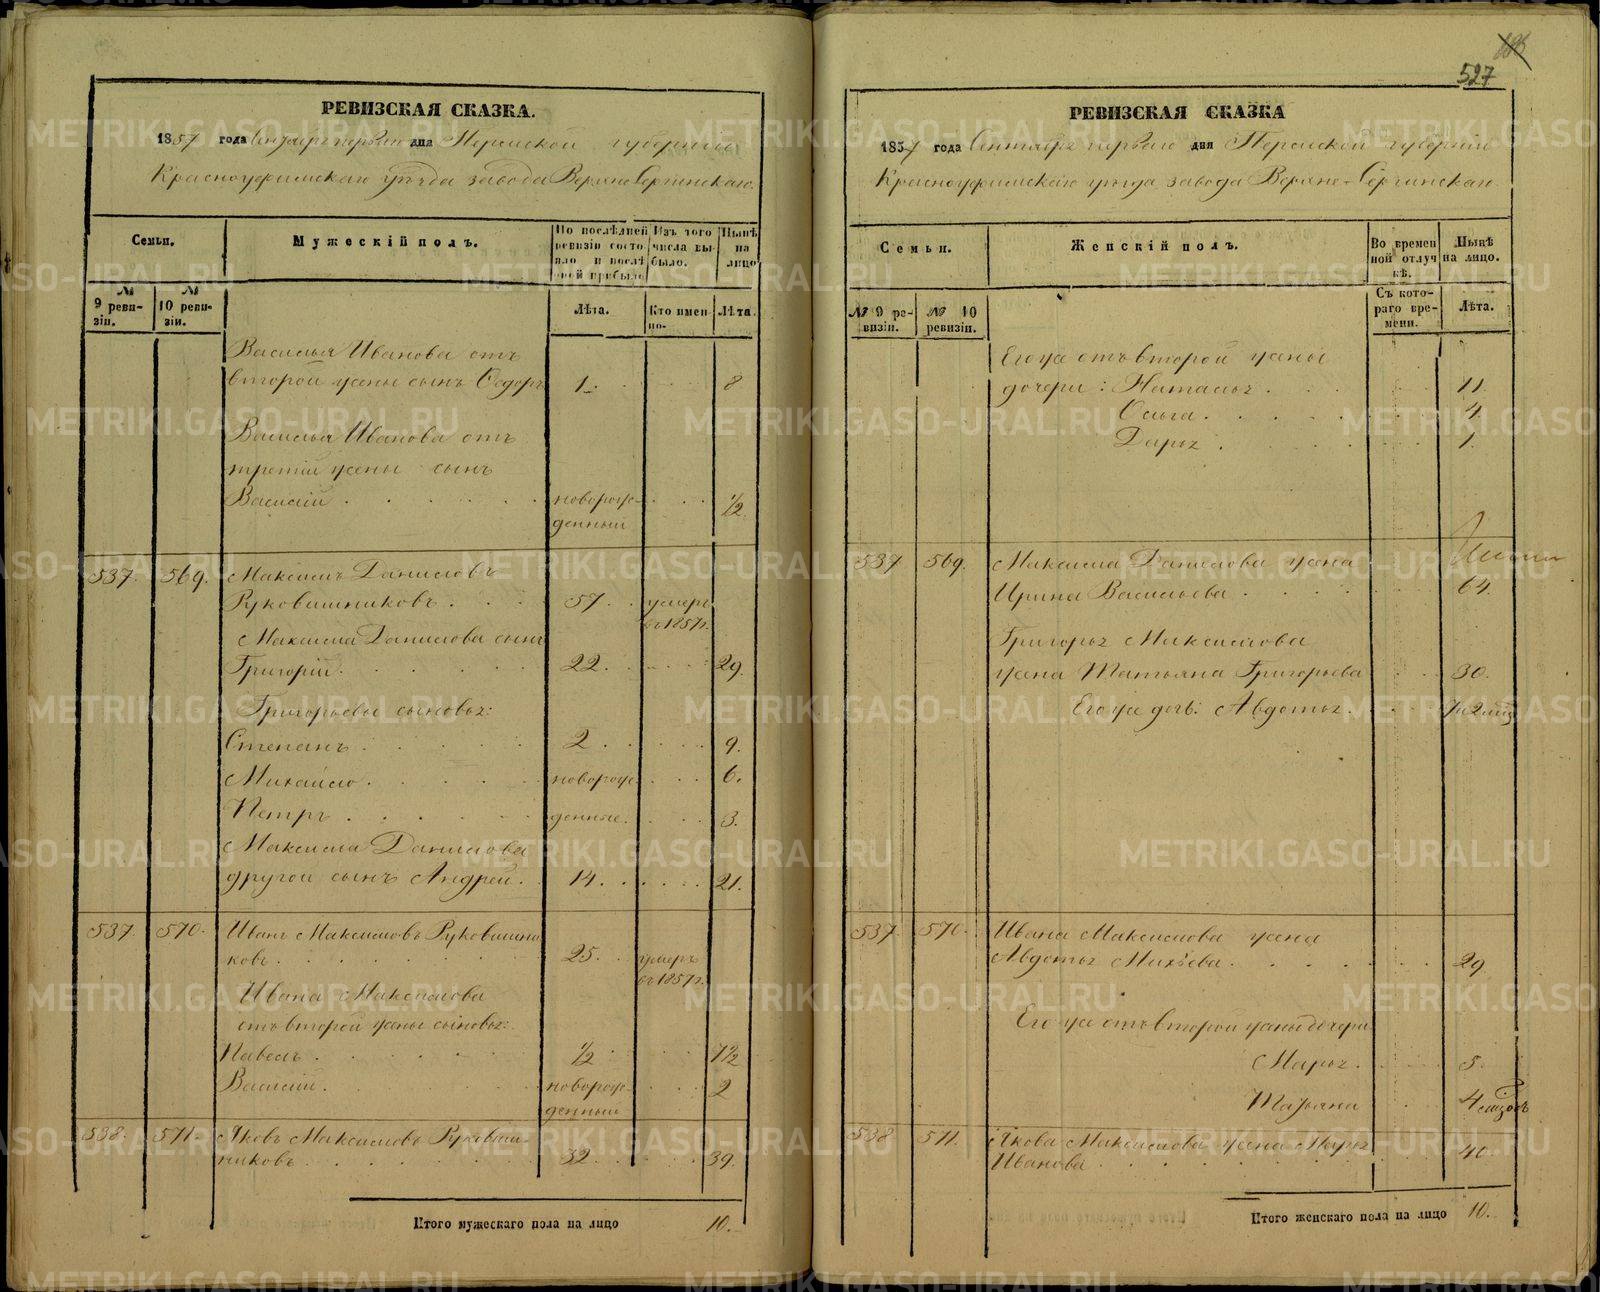 РЕВИЗСКАЯ СКАЗКА.
1857 года Сентября первого дня Пермской губернии
Красноуфимскаго уѣзда завода Верхне-Сергинскаго.
Семьи.
Мужескій полъ.
По послѣдней ревизіи состояло и послѣ оной прибыло
Изъ того числа выбыло.
Нынѣ на лицо
№ 9 ревизіи.
№ 10 ревизіи.
Лѣта.
Кто именно.
Лѣта.
Василья Иванова отъ
второй жены сынъ Ѳедоръ 1. 8
Василья Иванова отъ
третій жены сынъ
Василій новорож- 1/2
денный
537. 569. Максимъ Даниловъ
Рукавишниковъ. 57. умеръ
въ 1857 г.
Максима Данилова сынъ
Григорій. 22. 29.
Григорьевы сыновья:
Степанъ. 2. 9.
Михайло. новорож- 6.
Петръ. денные. 3.
Максима Данилова
другой сынъ Андрей. 14. 21.
537. 570. Иванъ Максимовъ Рукавишни-
ковъ. 25. умеръ
въ 1857 г.
Ивана Максимова
отъ второй жены сыновья:
Павелъ. 1/2 7 1/2
Василій. новорож- 2
денный
538. 571. Яковъ Максимовъ Рукавиш-
никовъ. 32. 39.
Итого мужескаго пола на лицо 10.
527
РЕВИЗСКАЯ СКАЗКА
1857 года Сентября первого дня Пермской губерніи
Красноуфимскаго уѣзда завода Верхне-Сергинскаго.
Семьи.
Женскій полъ.
Во временной отлучкѣ.
Нынѣ на лицо.
№ 9 ревизіи.
№ 10 ревизіи.
Съ котораго времени.
Лѣта.
Его же отъ второй жены
дочери: Наталья. 11.
Ольга. 4.
Дарья. 1.
537 569. Максима Данилова жена
Ирина Васильева. 64.
Григорья Максимова
жена Татьяна Григорьева 30.
Его же дочь: Авдотья.
537. 570. Ивана Максимова жена
Авдотья Михѣева. 29
Его же отъ второй жены дочери
Марья. 5.
Татьяна 4
538 571. Якова Максимова жена Марья
Иванова. 40.
Итого женскаго пола на лицо 10.
METRIKI.GASO-URAL.RU